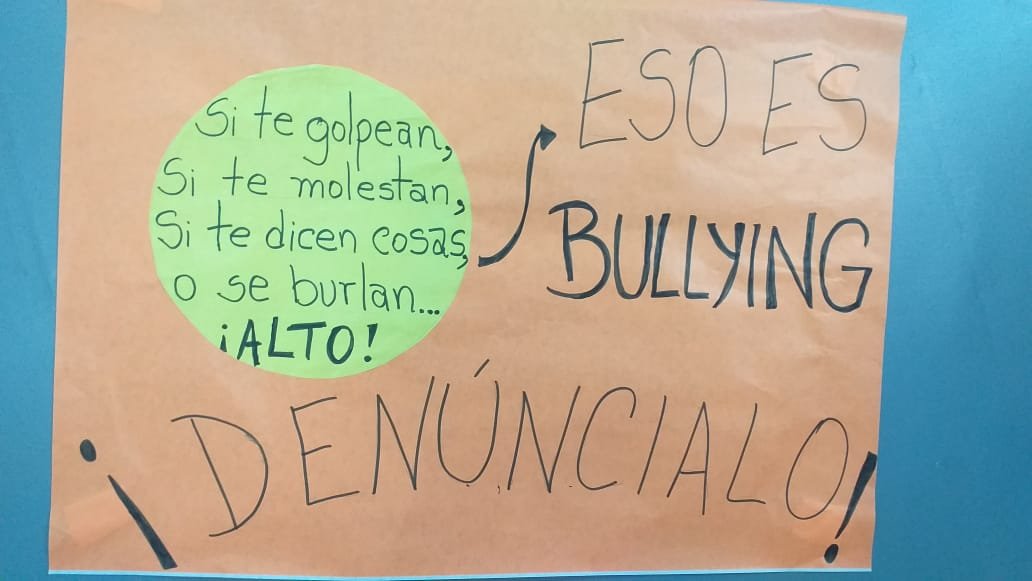 Si te golpean,
Si te molestan,
Si te dicen cosas,
o se burlan...
¡ALTO!
ESO ES
BULLYING
¡DENÚNCIALO!